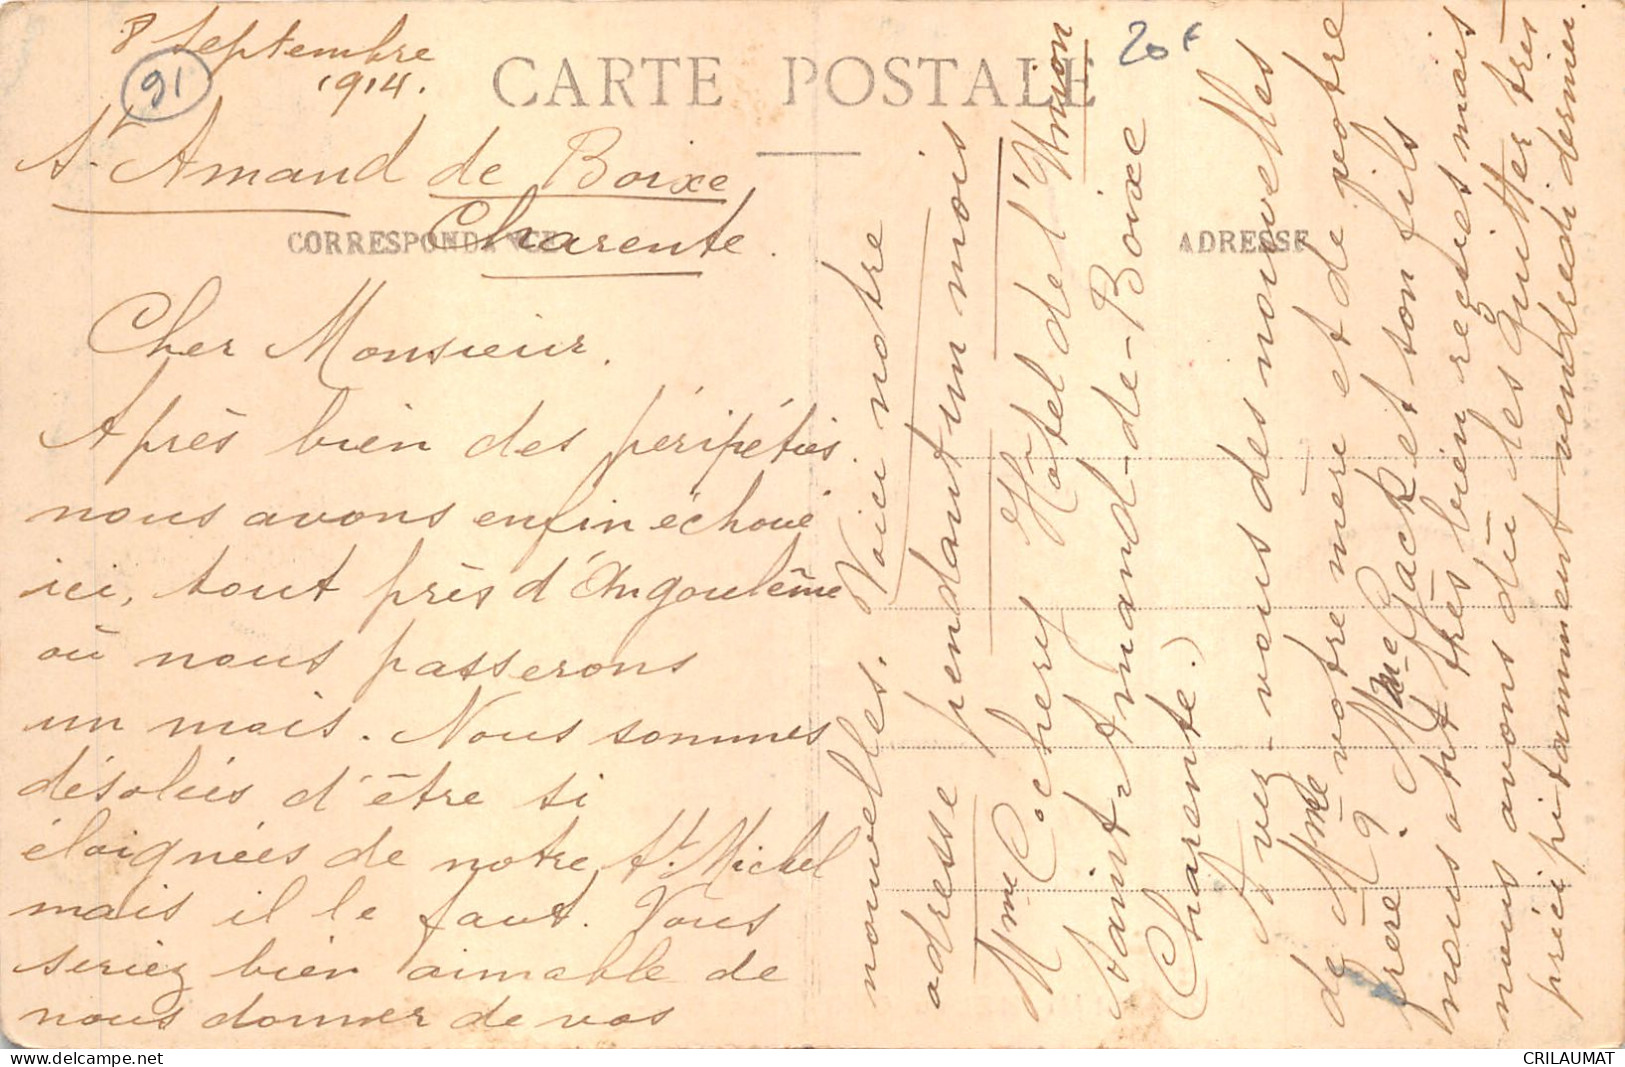 8 Septembre
1914.
91
20 F
CARTE POSTALE
St Amand de Boixe
Charente.
CORRESPONDANCE
ADRESSE
Cher Monsieur.
Après bien des péripéties
nous avons enfin échoué
ici, tout près d'Angoulême
où nous passerons
un mois. Nous sommes
désolées d'être si
éloignées de notre St. Michel
mais il le faut. Vous
seriez bien aimable de
nous donner de vos
nouvelles. Voici notre
adresse pendant un mois
Mme Cochery Hôtel de l'Union
Saint Amand-de-Boixe
(Charente.)
Avez-vous des nouvelles
de Mme votre mère et de votre
frère? Mme Jacket son fils
nous ont très bien reçues mais
nous avons dû les quitter très
précipitamment vendredi dernier.
CRILAUMAT